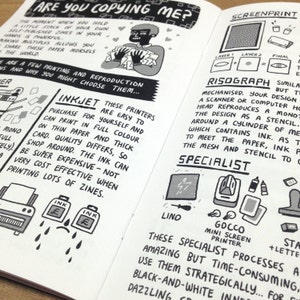 ARE YOU COPYING ME?
THE MOMENT WHEN YOU HOLD
LITTLE STACK OF YOUR OWN
SELF-PUBLISHED ZINES IN YOUR
MAKING MULTIPLES ALLOWS YOU
SHARE THESE PAPER MORSELS
WORLD.
ARE A FEW PRINTING AND REPRODUCTION
AND WHY YOU MIGHT CHOOSE THEM...
INKJET THESE PRINTERS
ARE EASY TO
PURCHASE FOR YOURSELF AND
CAN PRINT IN FULL COLOUR
ON THIN PAPER AND THICK
CARD. QUALITY DIFFERS, SO
SHOP AROUND. THE INK CAN
BE SUPER EXPENSIVE - NOT
VERY COST EFFECTIVE WHEN
PRINTING LOTS OF ZINES.
MONO
FULL
INK
INK
SCREENPRINT
LAYER 1
LAYER 2
FINAL
RISOGRAPH SIMILA
MECHANISED. YOUR DESIGN
A SCANNER OR COMPUTER
HEAD REPRODUCES A MONOT
THE DESIGN AS A STENCIL.
AROUND A CYLINDER OF M
WHICH CONTAINS INK. AS T
TO MEET THE PAPER, INK P
THE MESH AND STENCIL TO
SPECIALIST
LINO
GOCCO
MINI SCREEN
PRINTER
STA
+LETTE
THESE SPECIALIST PROCESSES A
AMAZING BUT TIME-CONSUMING,
USE THEM STRATEGICALLY... FOR
BLACK-AND-WHITE INKJE
DAZZLING